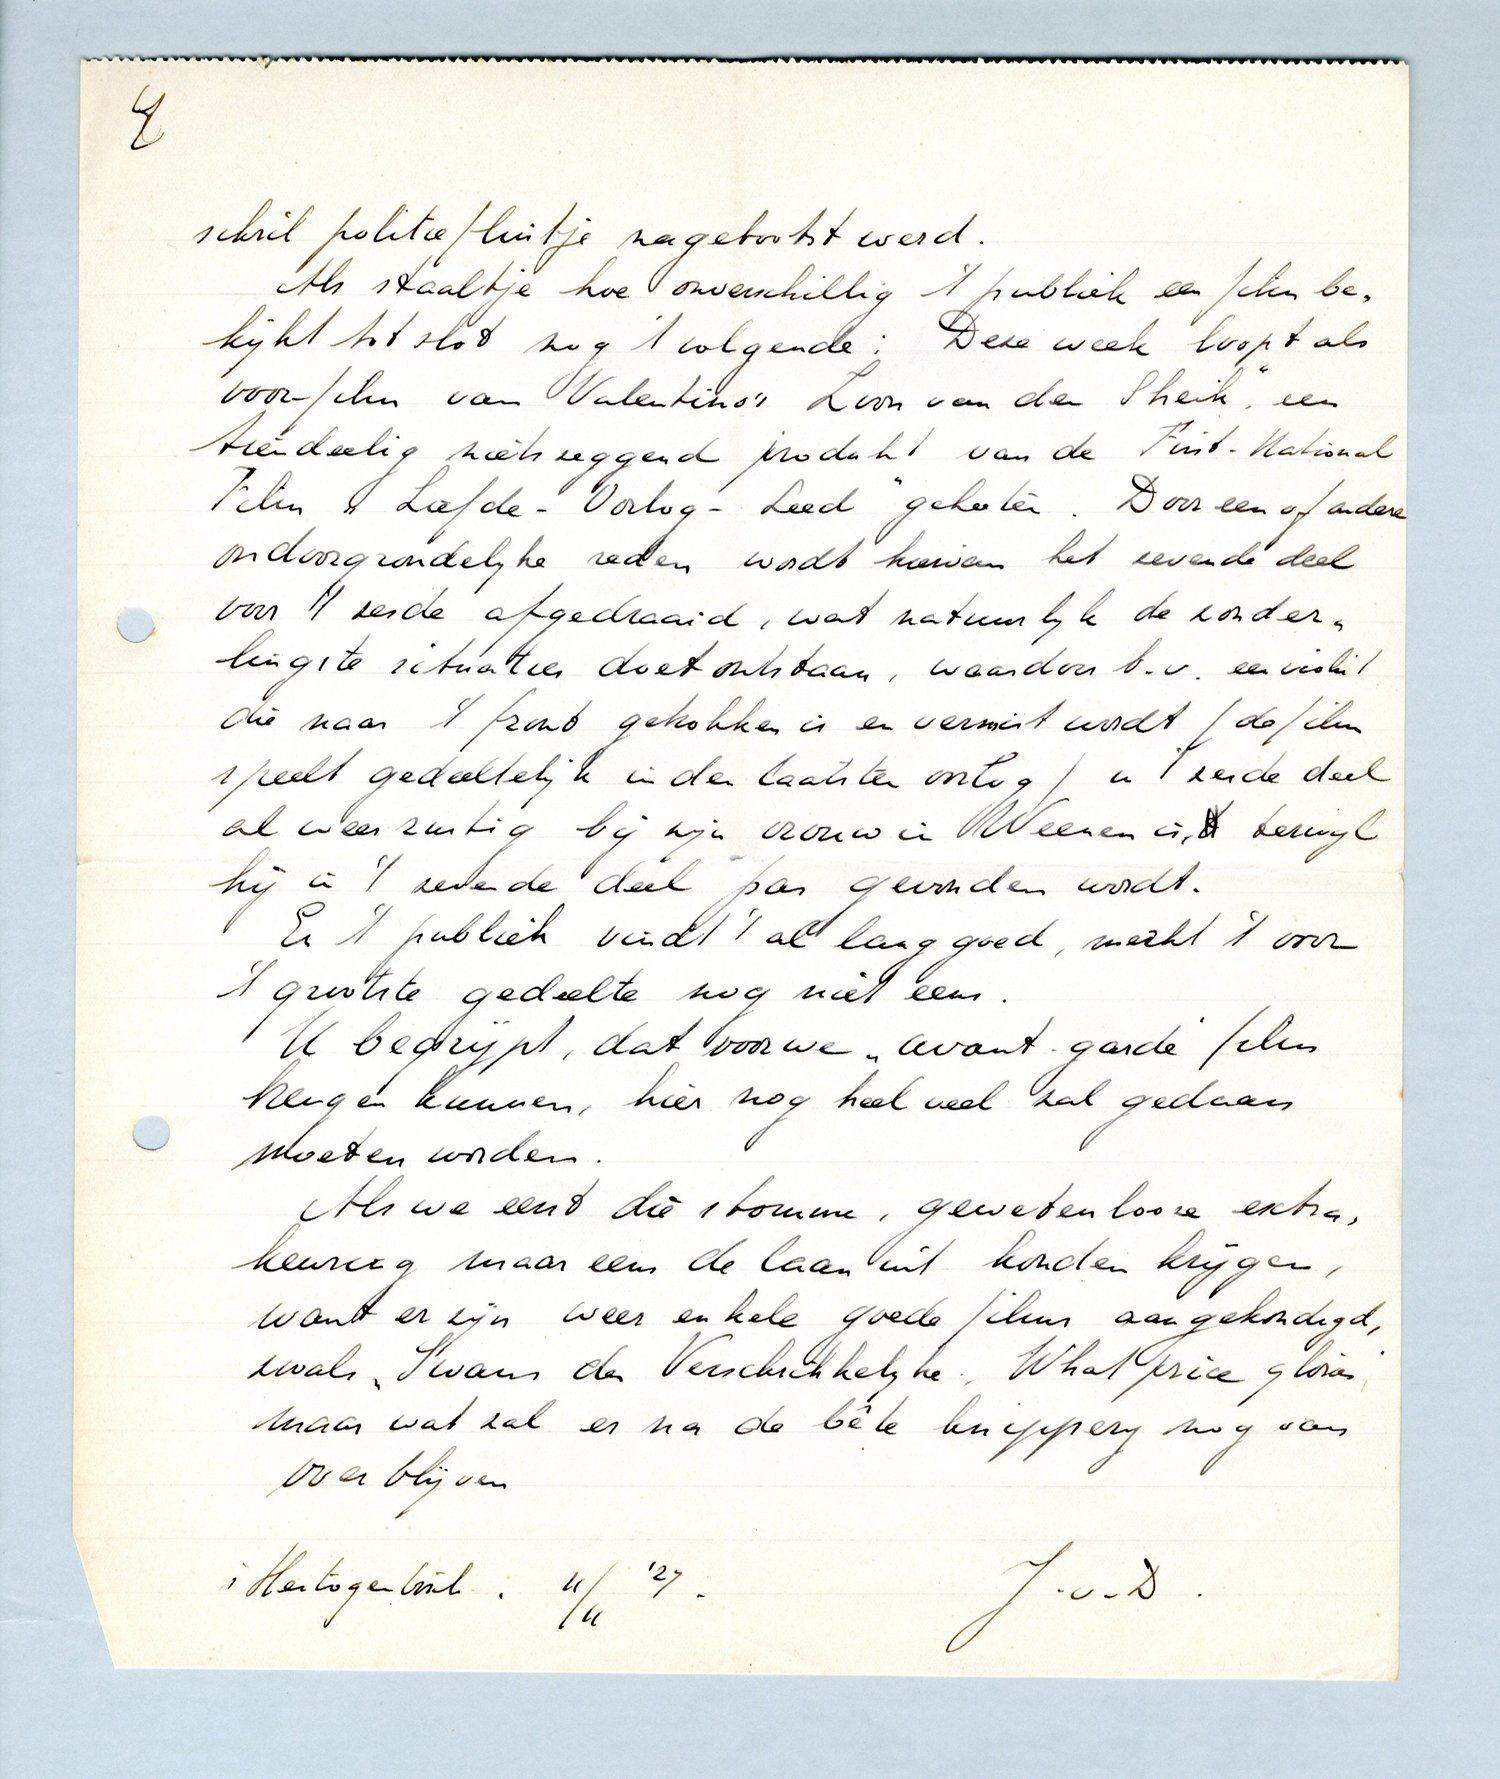 4
schril politiefluitje nagebootst werd.
Als staaltje hoe onverschillig 't publiek een film be„
kijkt tot slot nog 't volgende: Deze week loopt als
voor-film van Valentino's Zoon van den Sheik", een
tiendeelig nietszeggend produkt van de First-National
Film „Liefde-Oorlog-Leed" geheeten. Door een of andere
ondoorgrondelijke reden wordt hiervan het zevende deel
voor 't zesde afgedraaid, wat natuurlijk de zonder„
lingste situaties doet ontstaan, waardoor b.v. een violist
die naar 't front getrokken is en vermist wordt (de film
speelt gedeeltelijk in den laatsten oorlog) in 't zesde deel
al weer rustig bij zijn vrouw in Weenen is, terwijl
hij in 't zevende deel pas gevonden wordt.
En 't publiek vindt 't al lang goed, merkt 't voor
't grootste gedeelte nog niet eens.
U begrijpt, dat voor we „avant-garde films
brengen kunnen, hier nog heel veel zal gedaan
moeten worden.
Als we eerst die stomme, gewetenlooze extra„
keuring maar eens de laan uit konden krijgen,
want er zijn weer enkele goede films aangekondigd,
zooals „Iwans den Verschrikkelijke. What price glorie"
maar wat zal er na de bête knipperij nog van
overblijven
's Hertogenbosch. 11/11 '27. J.v.D.